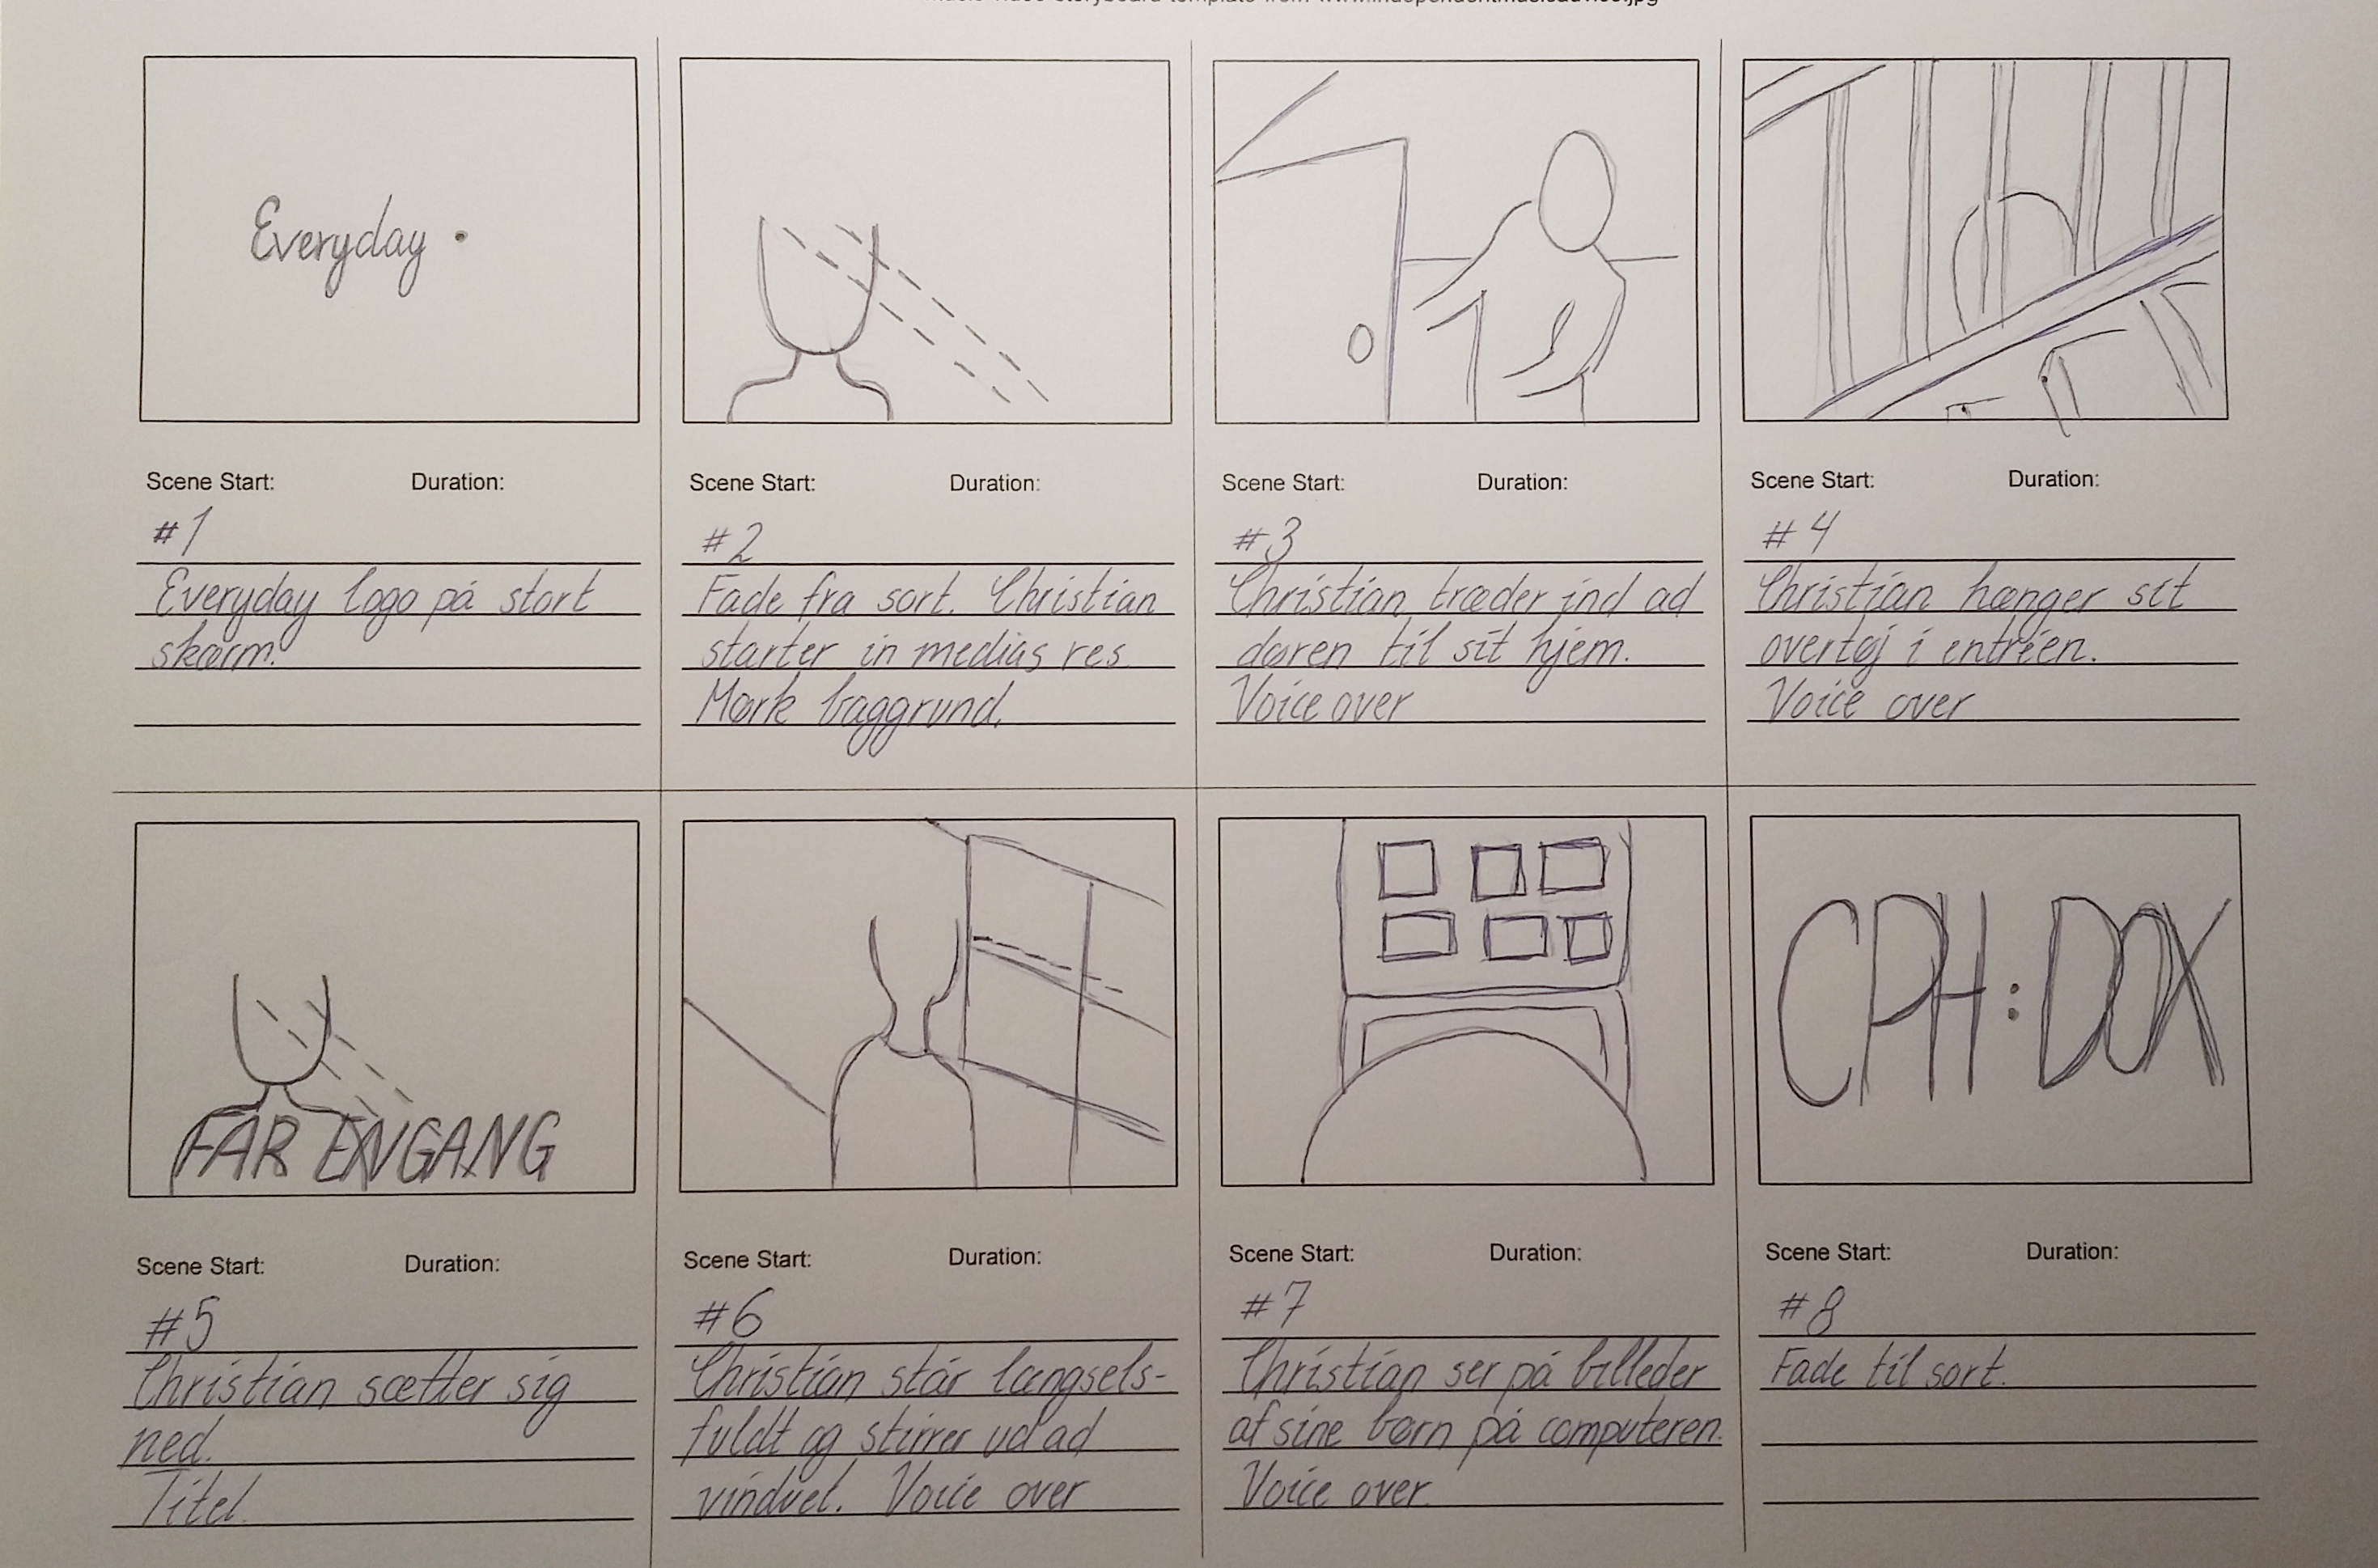 music video storyboard template from www.independentmusicadvice.jpg
Everyday •
Scene Start: Duration:
#1
Everyday logo på stort
skærm.
Scene Start: Duration:
#2
Fade fra sort. Christian
starter in medias res
Mørk baggrund.
Scene Start: Duration:
#3
Christian træder ind ad
døren til sit hjem.
Voice over
Scene Start: Duration:
#4
Christian hænger sit
overtøj i entréen.
Voice over
FAR ENGANG
Scene Start: Duration:
#5
Christian sætter sig
ned.
Titel
Scene Start: Duration:
#6
Christian står længsels-
fuldt og stirrer ud ad
vinduet. Voice over
Scene Start: Duration:
#7
Christian ser på billeder
af sine børn på computeren.
Voice over
CPH:DOX
Scene Start: Duration:
#8
Fade til sort.